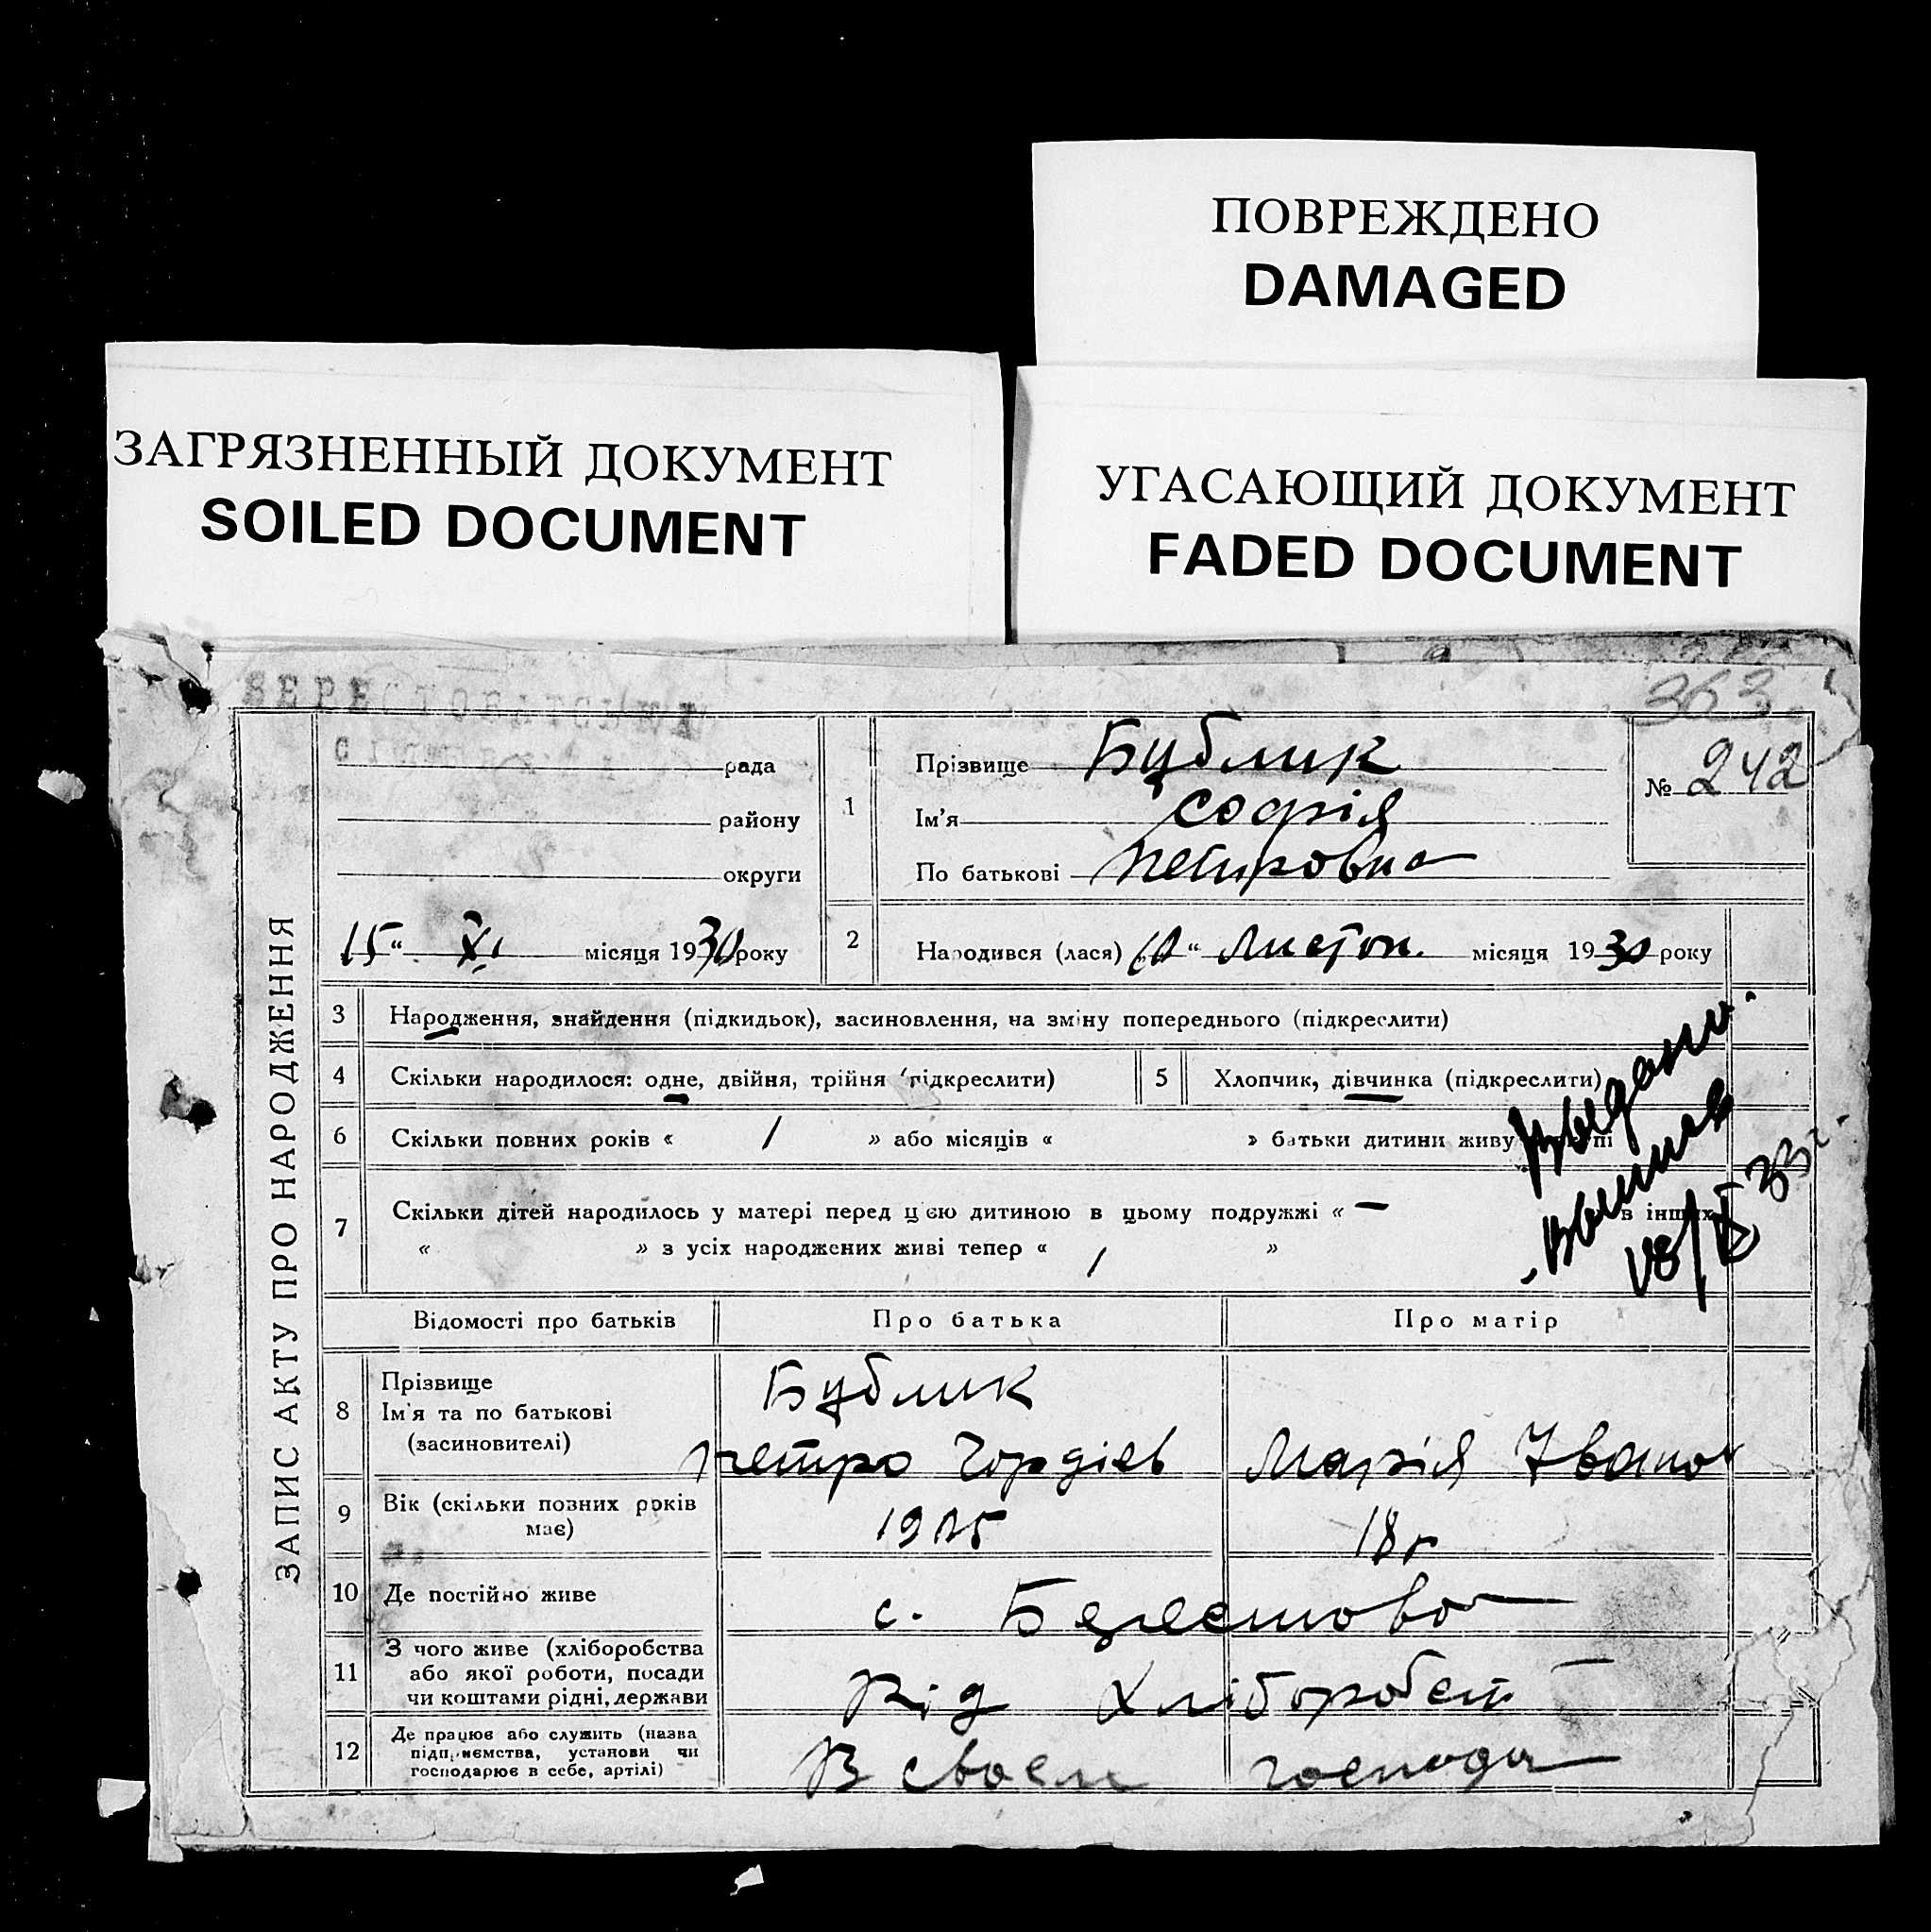 ПОВРЕЖДЕНО
DAMAGED
ЗАГРЯЗНЕННЫЙ ДОКУМЕНТ
SOILED DOCUMENT
УГАСАЮЩИЙ ДОКУМЕНТ
FADED DOCUMENT
363
ЗАПИС АКТУ ПРО НАРОДЖЕННЯ
рада
району
округи
15 " XI місяця 1930 року
1 Прізвище Бублик
Ім'я Софія
По батькові Петровна
№ 242
2 Народився (лася) 10 " Листоп. місяця 1930 року
3 Народження, знайдення (підкидьок), засиновлення, на зміну попереднього (підкреслити)
4 Скільки народилося: одне, двійня, трійня (підкреслити)
5 Хлопчик, дівчинка (підкреслити)
6 Скільки повних років « / » або місяців « » батьки дитини живу
7 Скільки дітей народилось у матері перед цією дитиною в цьому подружжі « — в інших
« » з усіх народжених живі тепер « / »
33 г.
Відомості про батьків Про батька Про матір
8 Прізвище
Ім'я та по батькові
(засиновителі)
Бублик
Петро Гордієв Марія Іванов
9 Вік (скільки повних років має) 1905 18 г
10 Де постійно живе с. Берестова
11 З чого живе (хліборобства
або якої роботи, посади
чи коштами рідні, держави
Від хліборобст
12 Де працює або служить (назва
підприємства, установи чи
господарює в себе, артілі)
В своєм господа